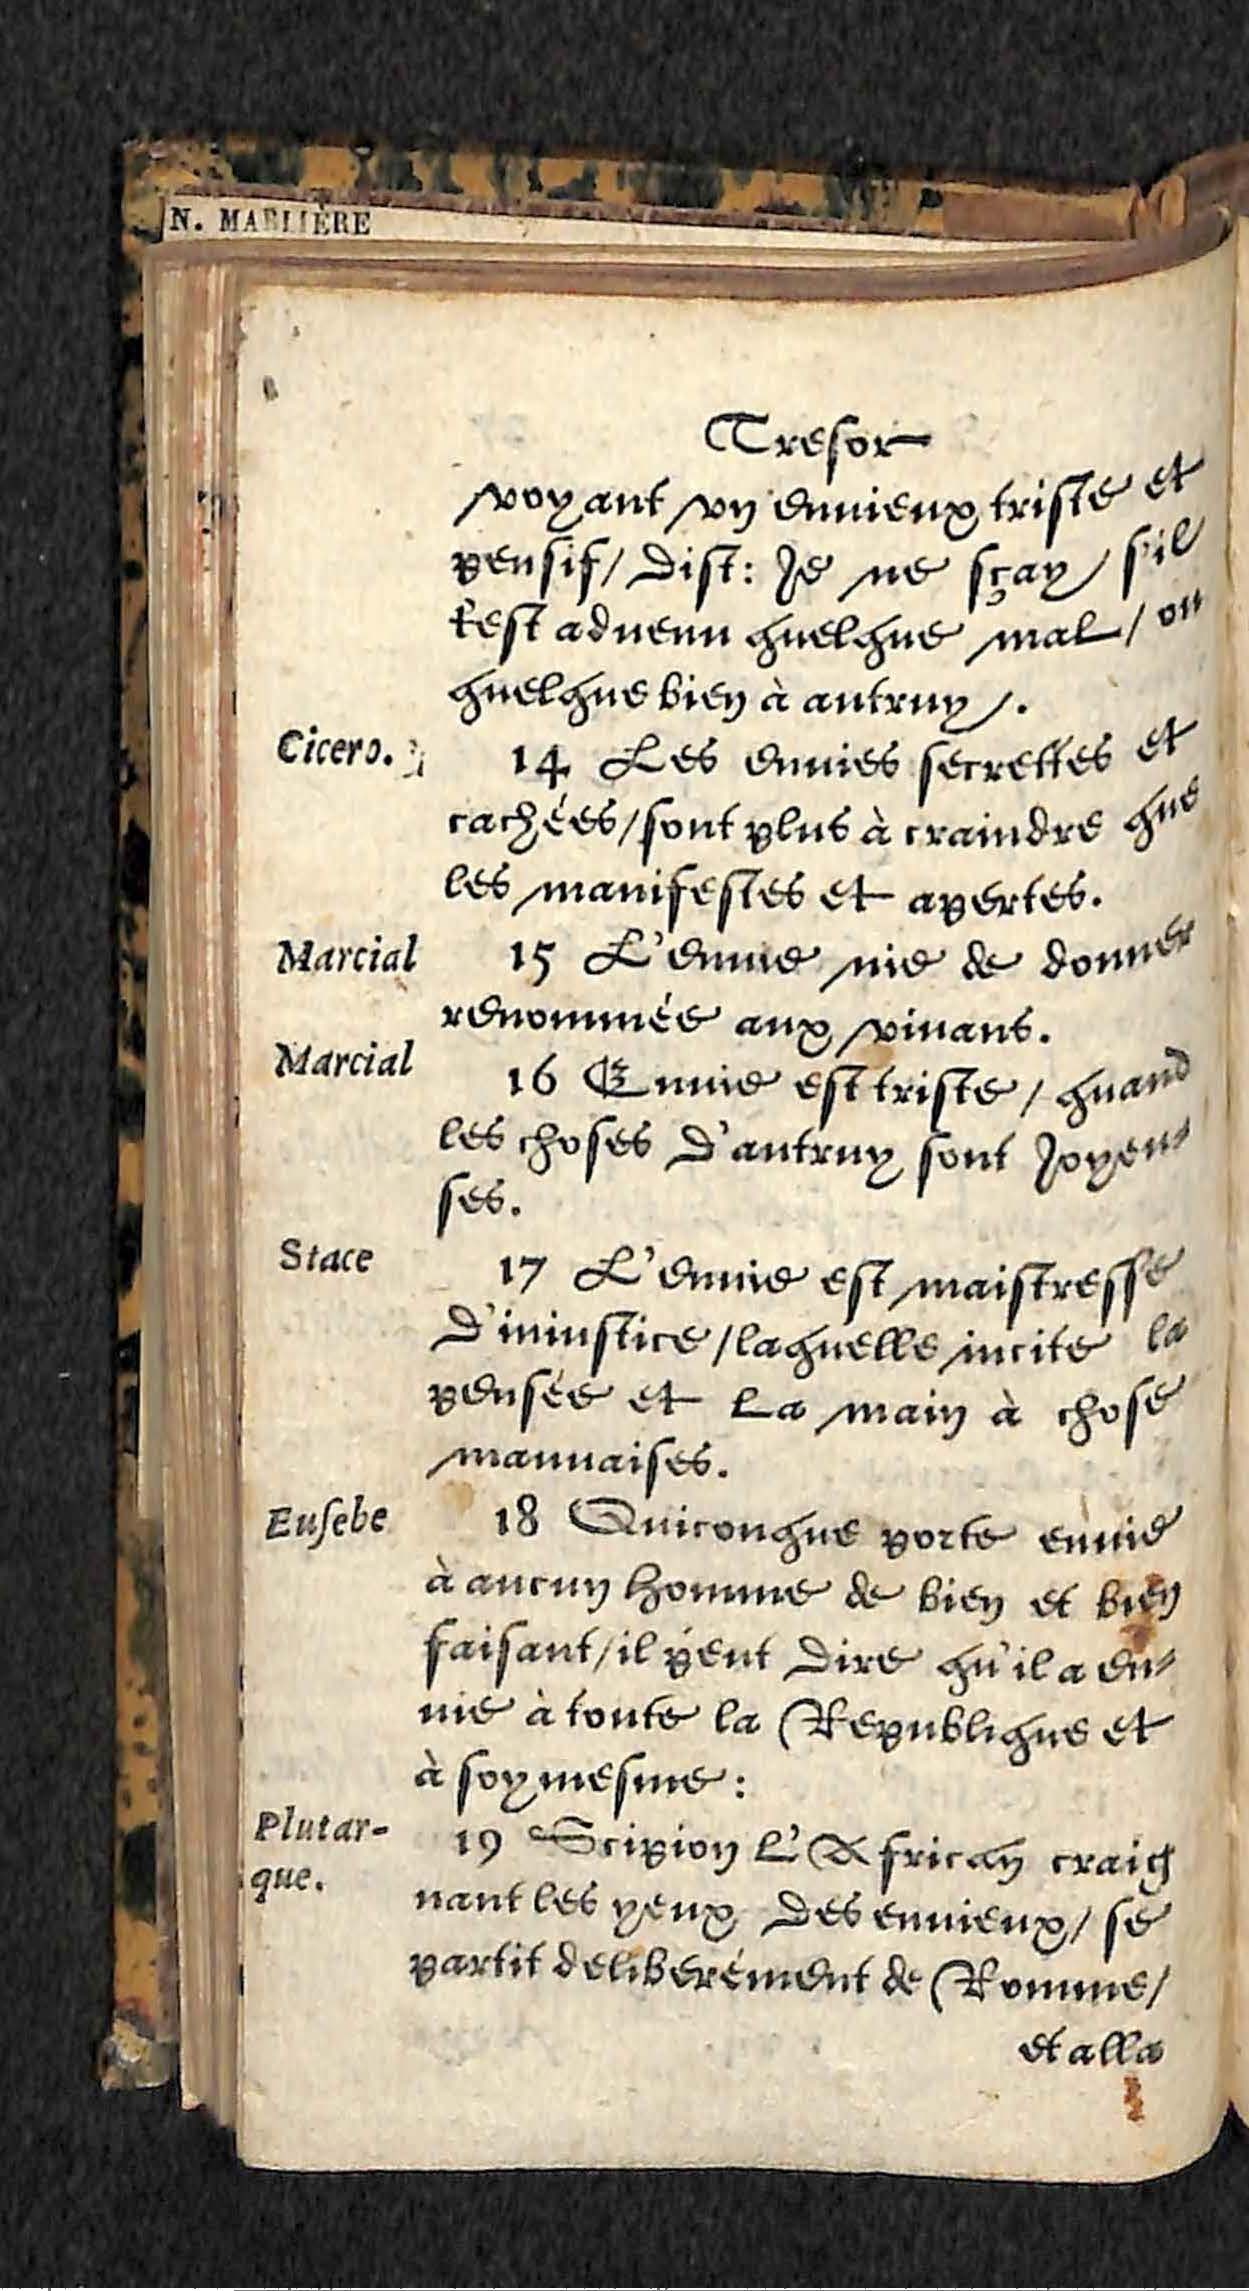 N. MARLIÈRE
Tresor
voyant vn enuieux triste et
pensif/ dist: Je ne sçay s'il
t'est aduenu quelque mal/ ou
quelque bien à autruy.
Cicero.
14 Les enuies secrettes et
cachées/ sont plus à craindre que
les manifestes et apertes.
Marcial
15 L'enuie nie de donner
renommée aux viuans.
Marcial
16 Enuie est triste/ quand
les choses d'autruy sont Joyeu-
ses.
Stace
17 L'enuie est maistresse
d'iniustice/ laquelle incite la
pensée et la main à chose
mauuaises.
Eusebe
18 Quiconque porte enuie
à aucun homme de bien et bien
faisant/ il peut dire qu'il a en-
uie à toute la Republique et
à soymesme:
Plutar-
que.
19 Scipion l'African craig
nant les yeux des enuieux/ se
partit deliberément de Romme/
et alla